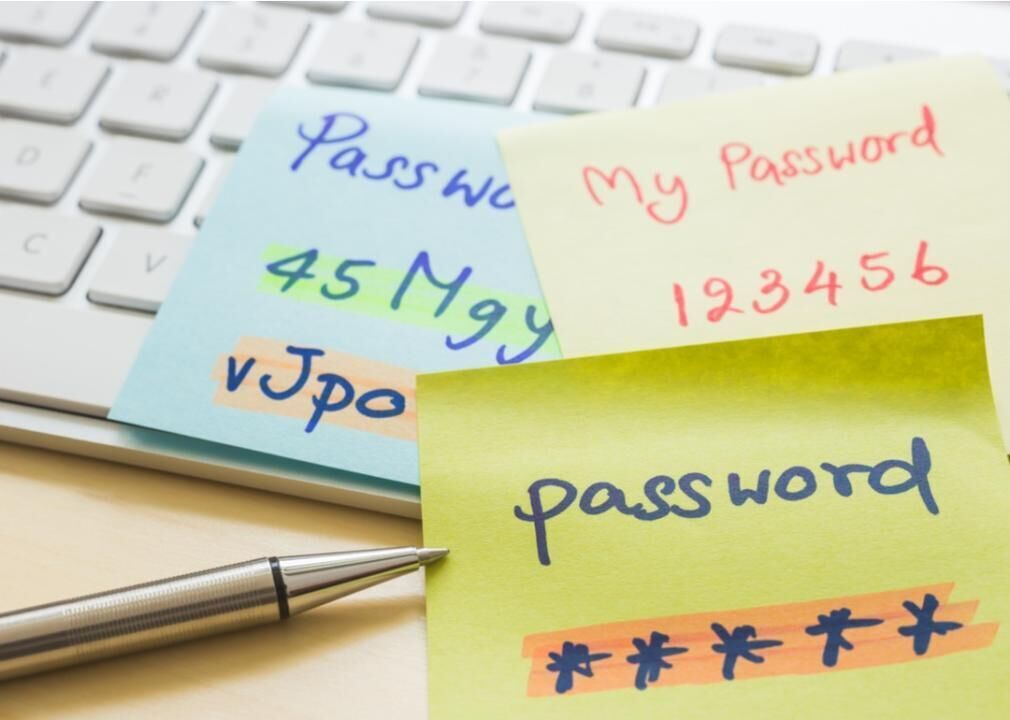 Passwo
45 Mgy
vJpo
My Password
123456
password
*****
D
F
C
V
R